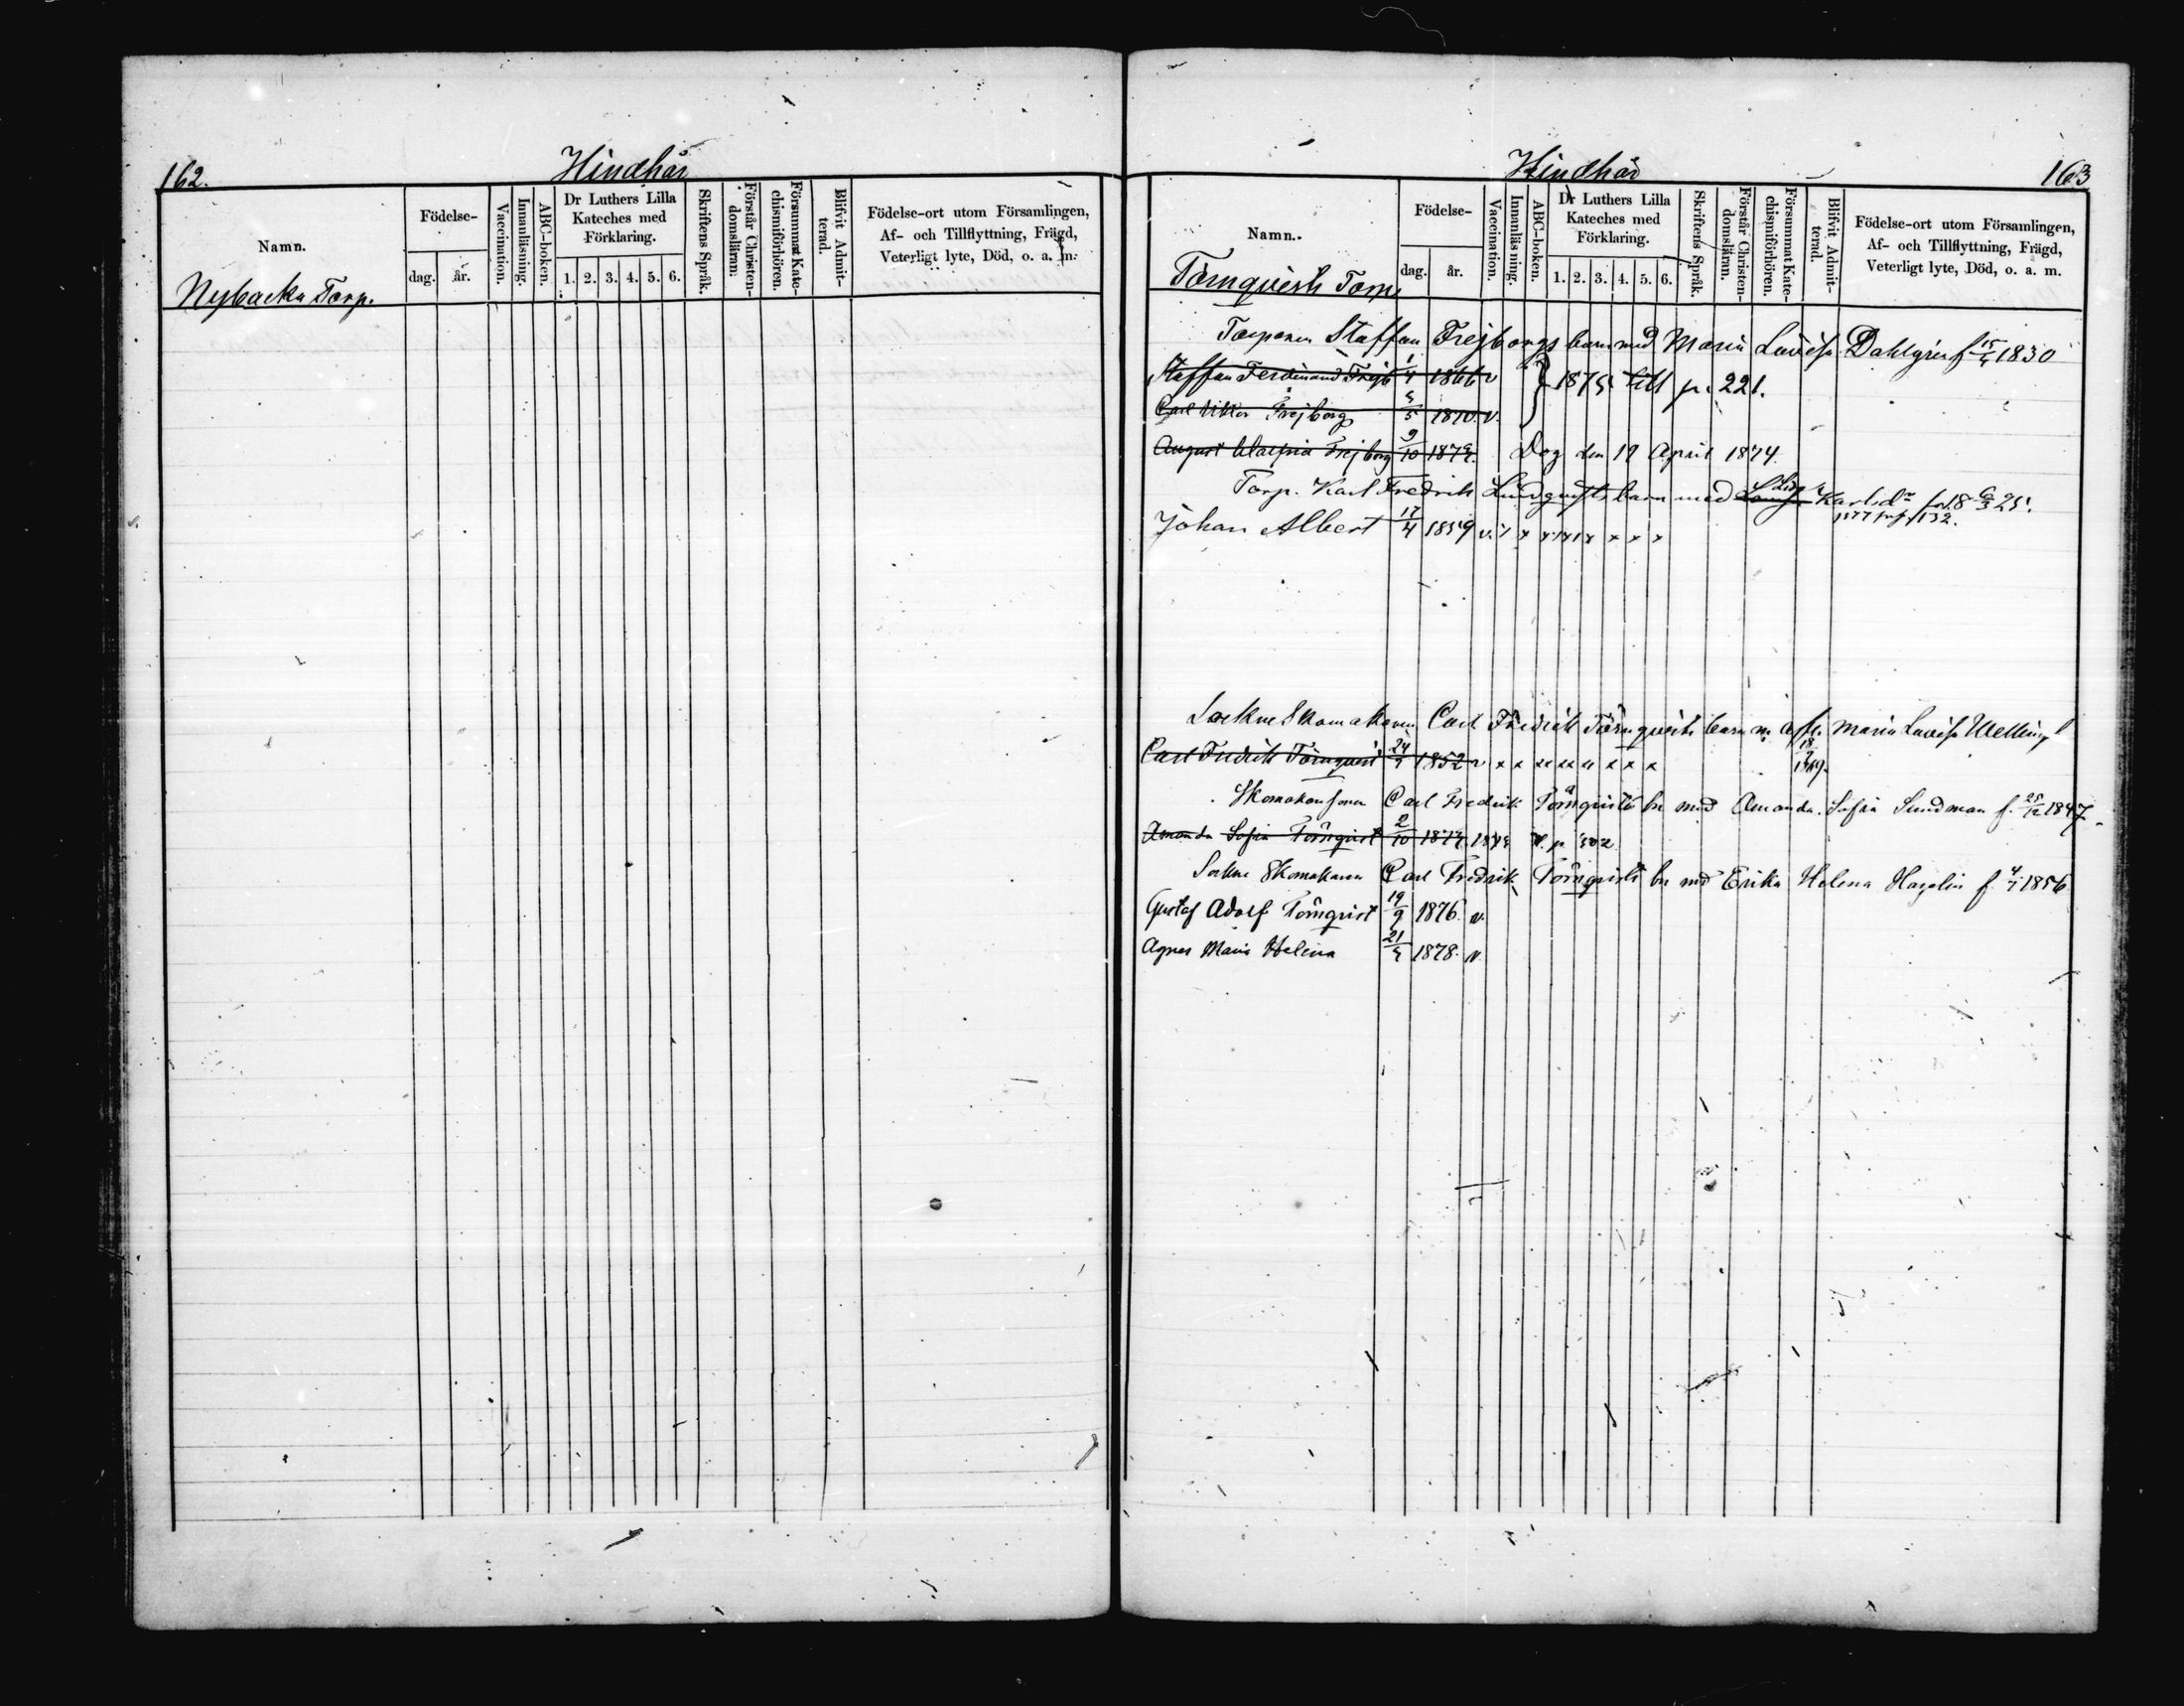 162.
Hindhår
Namn.
Födelse-
dag.
år.
Vaccination.
Innanläsning.
ABC-boken.
Dr Luthers Lilla
Kateches med
Förklaring.
1. 2. 3. 4. 5. 6.
Skriftens Språk.
Förstår Christen-
domsläran.
Försummat Kate-
chismiförhören.
Blifvit Admit-
terad.
Födelse-ort utom Församlingen,
Af- och Tillflyttning, Frägd,
Veterligt lyte, Död, o. a. m.
Nybacka Torp.
Hindhår
163
Namn.
Födelse-
dag.
år.
Vaccination.
Innanläsning.
ABC-boken.
Dr Luthers Lilla
Kateches med
Förklaring.
1. 2. 3. 4. 5. 6.
Skriftens Språk.
Förstår Christen-
domsläran.
Försummat Kate-
chismiförhören.
Blifvit Admit-
terad.
Födelse-ort utom Församlingen,
Af- och Tillflyttning, Frägd,
Veterligt lyte, Död, o. a. m.
Törnqvists Torp
Torparen Staffan Frejborgs barn med Maria Lovisa Dahlgren f. 1830
Staffan Ferdinand Frejb 1866 v } 1875 till p. 221.
Carl Viktor Frejborg 5/5 1870. v.
August Frejborg 9/10 187 Dog den 19 April 1874
Torp. Karl Fredrik Lundqvists barn med Karlsdr 25.
132.
Johan Albert 17/4 1859 v. x x x x x x x x
Sockne Skomakaren Carl Fredrik Törnqvists barn m. Maria Lovisa Welling
Carl Fredrik Törnqvist 24 1852 v x x x x x x x x x 1869.
Skomakaresonen Carl Fredrik Törnqvists bn med Amanda Sofia Sundman f. 25/12 1847
Amanda Sofia Törnqvist 2/10 187 p. 302
Sockne Skomakaren Carl Fredrik Törnqvists bn med Erika Helena Hagelin f. 1856
Gustaf Adolf Törnqvist 19/9 1876. v.
Agnes Maria Helena 21 1878. v.